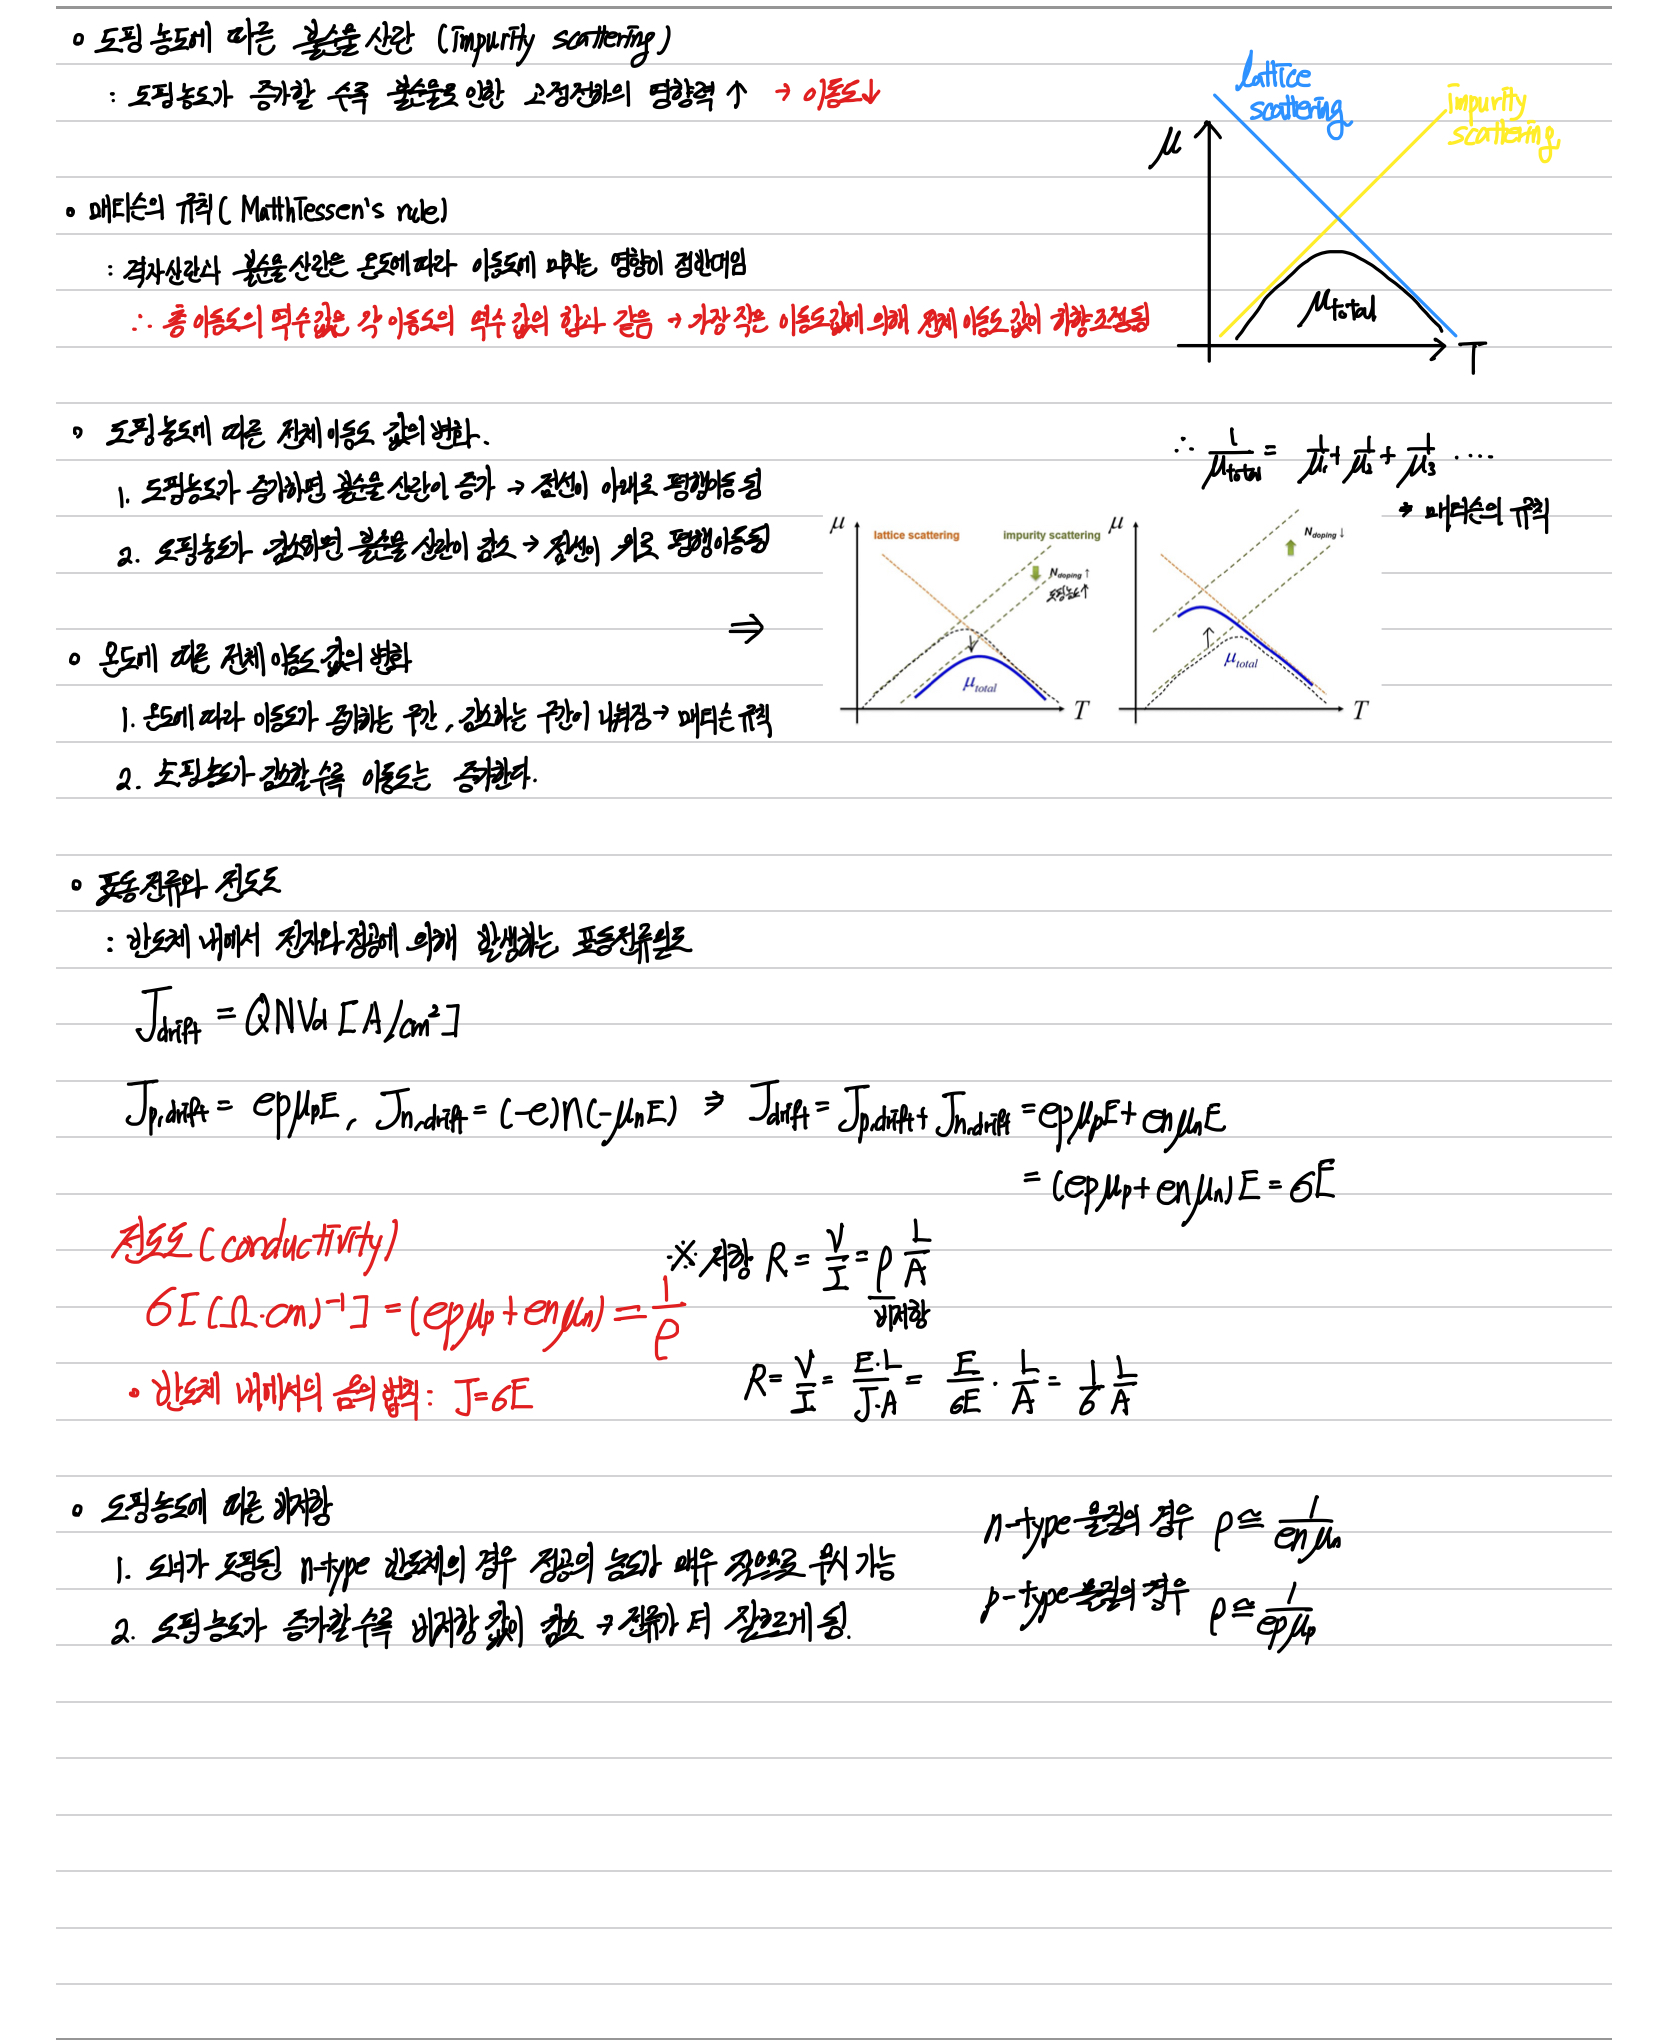 o 도핑 농도에 따른 불순물 산란 (impurity scattering)
: 도핑농도가 증가할 수록 불순물로 인한 고정전하의 영향력 ↑ → 이동도↓
lattice scattering
impurity scattering
μ
μtotal
T
o 매티슨의 규칙 ( Matthiessen's rule)
: 격자산란과 불순물 산란은 온도에 따라 이동도에 미치는 영향이 정반대임
∴ 총 이동도의 역수값은 각 이동도의 역수 값의 합과 같음 → 가장 작은 이동도값에 의해 전체 이동도 값이 하향조정됨
∴ 1/μtotal = 1/μ₁ + 1/μ₂ + 1/μ₃ ····
⇒ 매티슨의 규칙
o 도핑농도에 따른 전체이동도 값의 변화.
1. 도핑농도가 증가하면 불순물 산란이 증가 → 점선이 아래로 평행이동 됨
2. 도핑농도가 감소하면 불순물 산란이 감소 → 점선이 위로 평행이동됨
⇒
μ
lattice scattering
impurity scattering
Ndoping ↑
도핑농도↑
μtotal
T
μ
Ndoping ↓
μtotal
T
o 온도에 따른 전체 이동도 값의 변화
1. 온도에 따라 이동도가 증가하는 구간, 감소하는 구간이 나눠짐 → 매티슨 규칙
2. 도핑농도가 감소할수록 이동도는 증가한다.
o 표동전류와 전도도
: 반도체 내에서 전자와 정공에 의해 발생하는 표동전류밀도
Jdrift = QNVd [A/cm²]
Jp,drift = epμpE, Jn,drift = (-e)n(-μnE) ⇒ Jdrift = Jp,drift + Jn,drift = epμpE + enμnE
= (epμp + enμn)E = σE
전도도 (conductivity)
σ[(Ω·cm)⁻¹] = (epμp + enμn) = 1/ρ
• 반도체 내에서의 옴의 법칙: J=σE
※ 저항 R = V/I = ρ L/A
비저항
R = V/I = E·L/J·A = E/σE · L/A = 1/σ L/A
o 도핑농도에 따른 비저항
1. 도너가 도핑된 n-type 반도체의 경우 정공의 농도가 매우 작으므로 무시 가능
2. 도핑 농도가 증가할 수록 비저항 값이 감소 → 전류가 더 잘흐르게 됨.
n-type 물질의 경우 ρ ≅ 1/enμn
p-type 물질의 경우 ρ ≅ 1/epμp